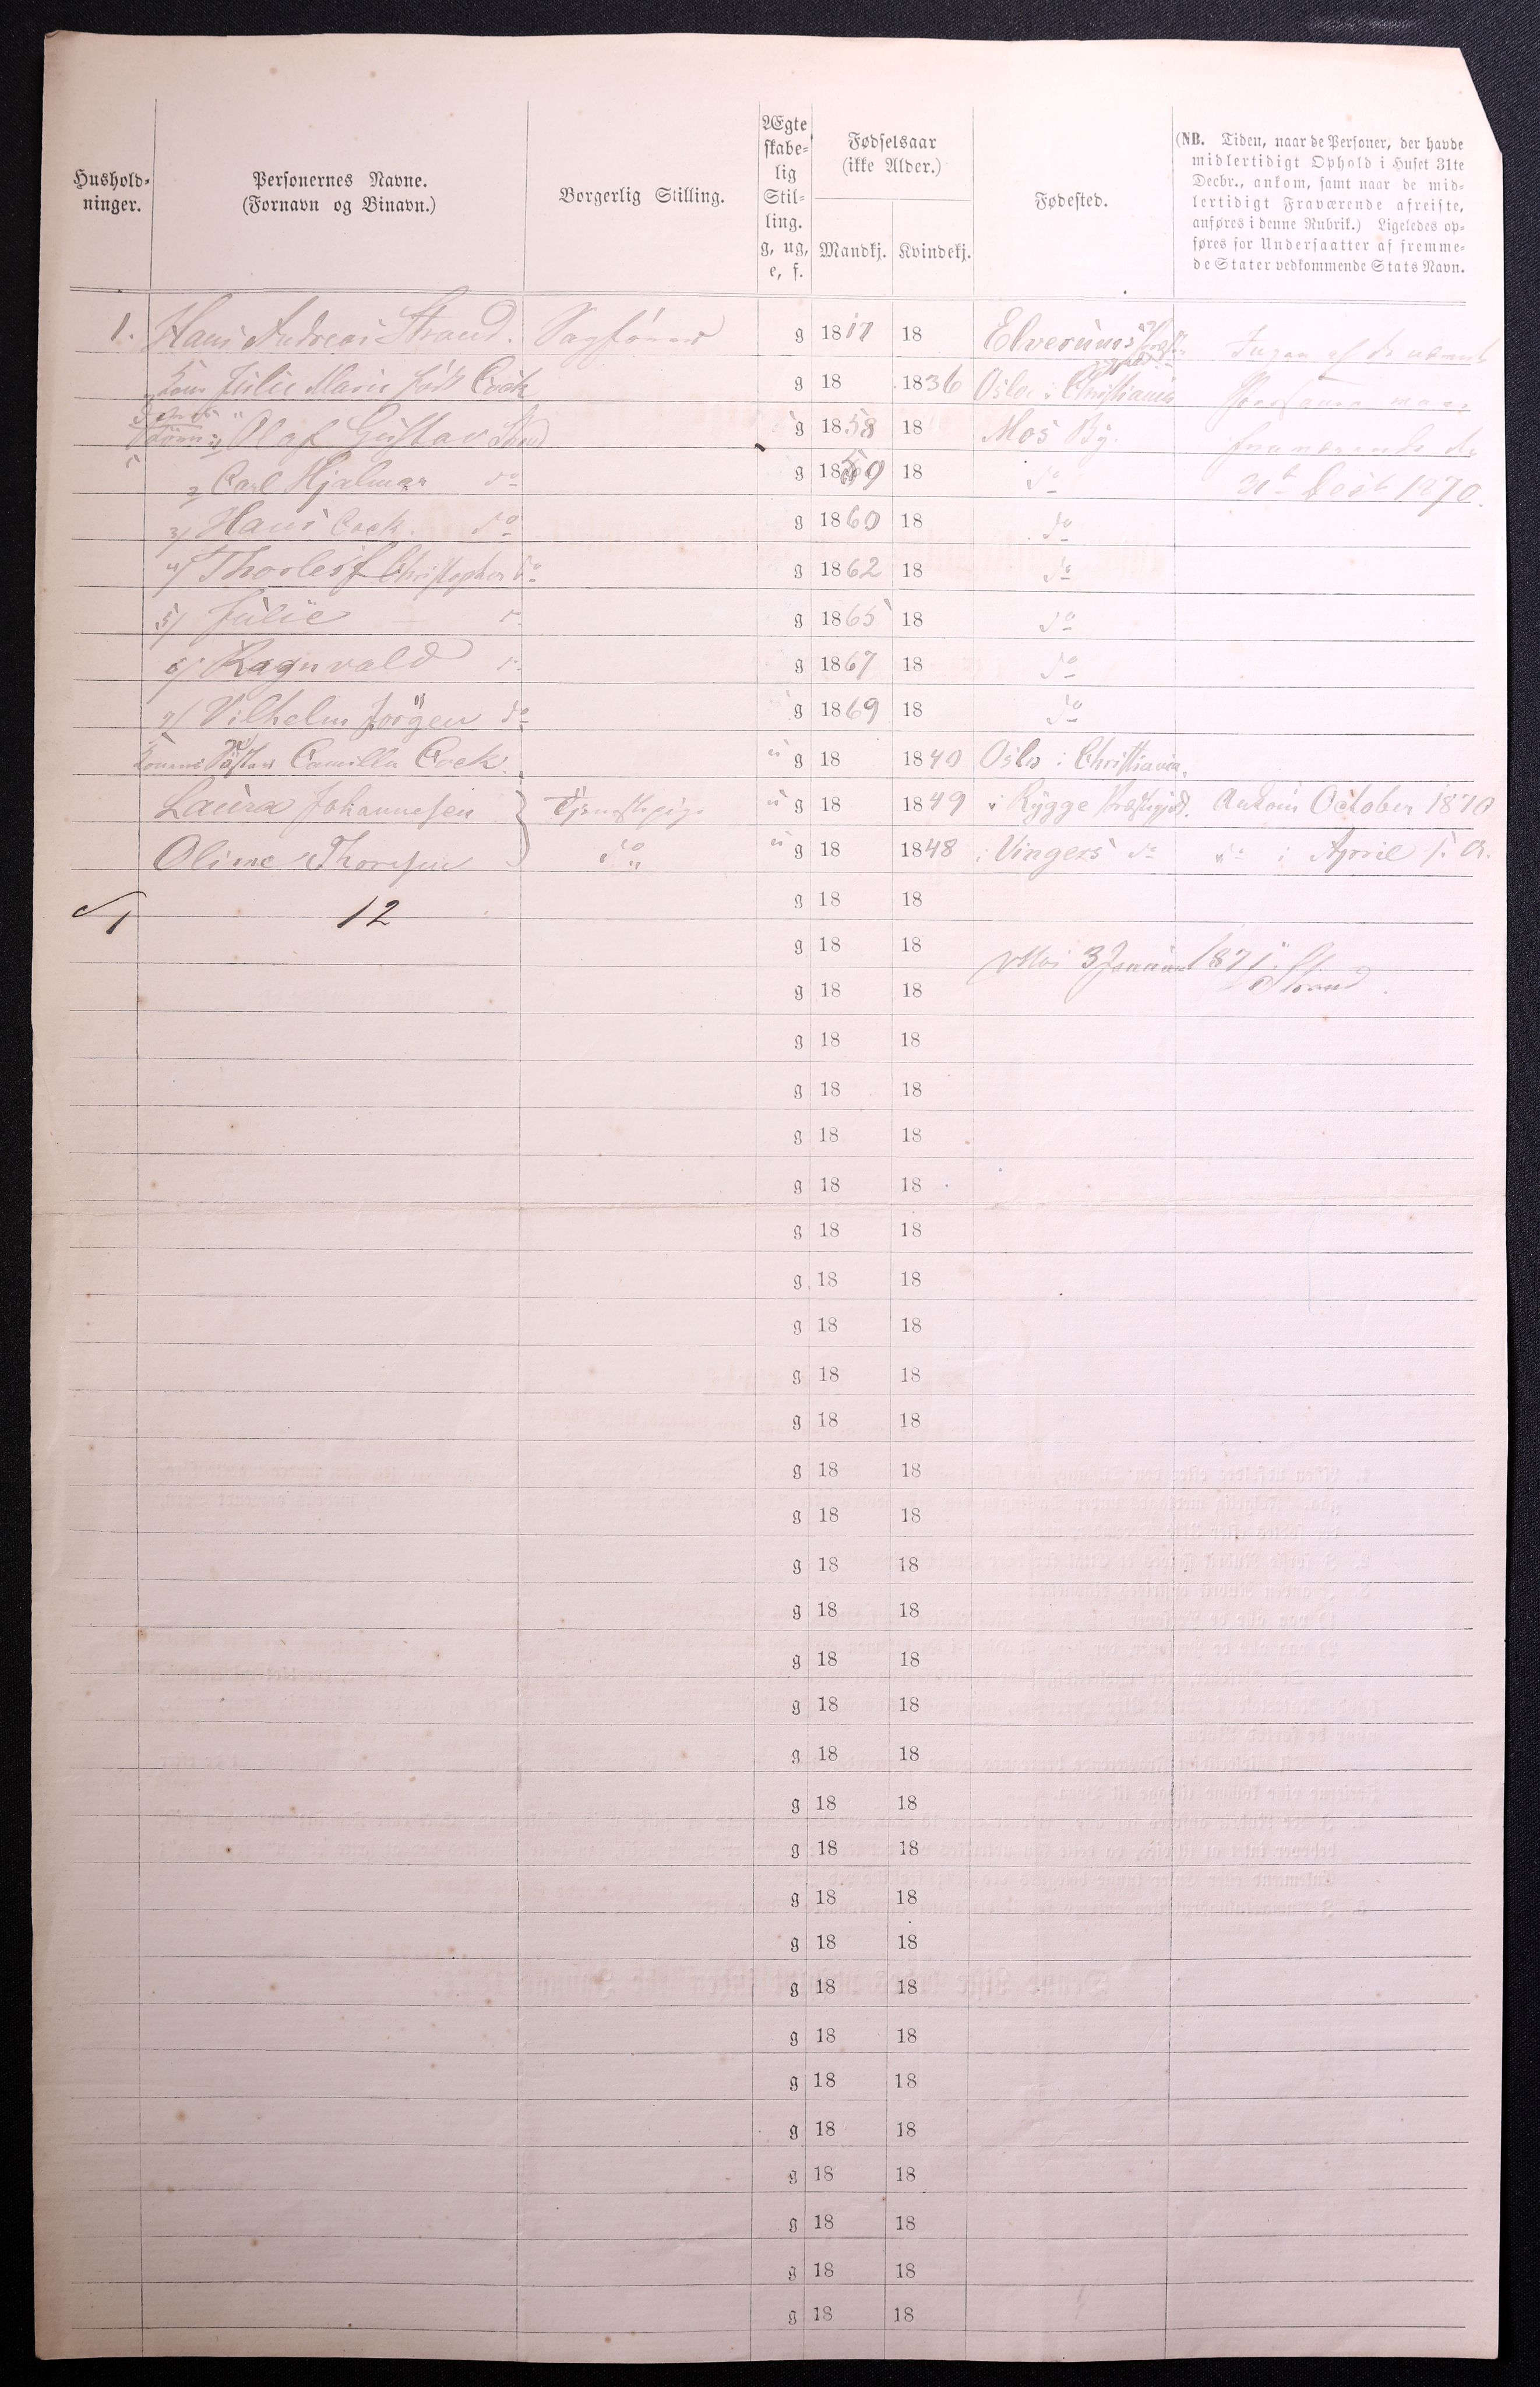 Hushold-
ninger.
Personernes Navne.
(Fornavn og Binavn.)
Borgerlig Stilling.
Ægte
skabe-
lig
Stil-
ling.
g, ug,
e, f.
Fødselsaar
(ikke Alder.)
Mandkj. Kvindekj.
Fødested.
(NB. Tiden, naar de Personer, der havde
midlertidigt Ophold i Huset 31te
Decbr., ankom, samt naar de mid-
lertidigt Fraværende afreiste,
anføres i denne Rubrik.) Ligeledes op-
føres for Undersaatter af fremme-
de Stater vedkommende Stats Navn.
1. Hans Andreas Strand. Sagfører g 1817 18 Elverums Ingen af de nævnte
Kone Julie Marie født Cock g 18 1836 Oslo i Christiania Personer vare
1) Olaf Gustav Strand g 1858 18 Mos By. fraværende den
2 Carl Hjalmar do g 1859 18 do 31te Decbr 1870.
3) Hans Cock. do g 1860 18 do
4) Thorleif Christopher do g 1862 18 do
5) Julie do g 1865 18 do
6) Ragnvald do g 1867 18 do
7) Vilhelm Jörgen do g 1869 18 do
Konens Søster Camilla Cock. u g 18 1840 Oslo i Christiania.
Laura Johannesen } Tjenestepige u g 18 1849 i Rygge Præstegjd. Ankom October 1870
Oline Thorsen do u g 18 1848 i Vingers do do i April f. A.
12 g 18 18
g 18 18 Mos 3 Januar 1871.
g 18 18 Strand.
g 18 18
g 18 18
g 18 18
g 18 18
g 18 18
g 18 18
g 18 18
g 18 18
g 18 18
g 18 18
g 18 18
g 18 18
g 18 18
g 18 18
g 18 18
g 18 18
g 18 18
g 18 18
g 18 18
g 18 18
g 18 18
g 18 18
g 18 18
g 18 18
g 18 18
g 18 18
g 18 18
g 18 18